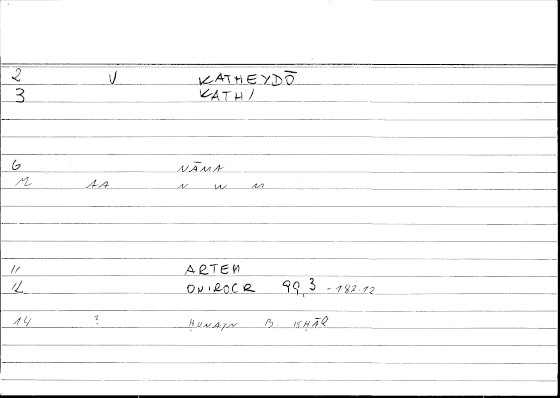 2 V KATHEYDŌ
3 KATHI
6 NĀMA
M AA N W M
11 ARTEM
12 ONIROCR 99,3 - 182.12
14 ? ḤUNAYN B. ISḤĀḲ